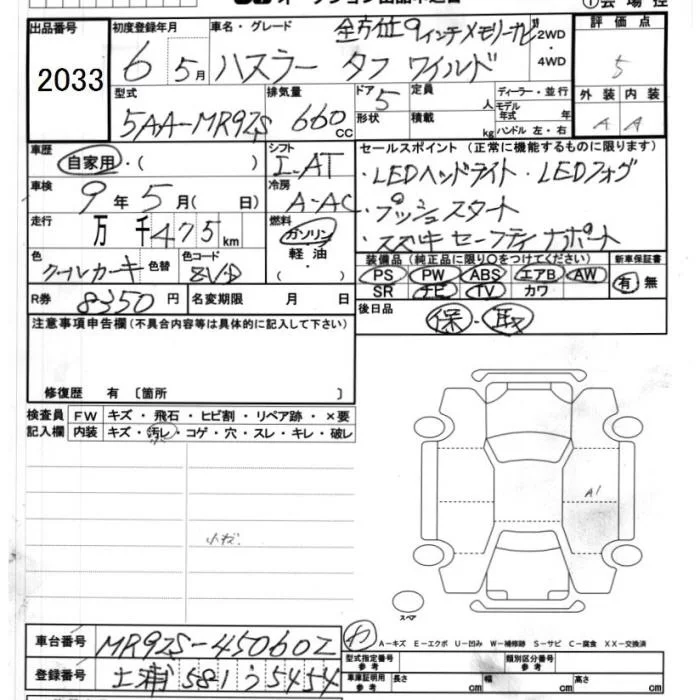 オークション出品申込書
①会場控
出品番号
2033
初度登録年月
6 5月
車名・グレード 全方位9インチメモリーナビ
ハスラー タフ ワイルド
2WD
・
4WD
評価点
5
型式
5AA-MR92S
排気量
660 CC
ドア 5
形状
定員 人
積載 kg
ディーラー・並行
モデル年式 年
ハンドル 左・右
外装 内装
A A
車歴
自家用・( )
シフト
I-AT
セールスポイント (正常に機能するものに限ります)
・LEDヘッドライト・LEDフォグ
・プッシュスタート
・スズキセーフティサポート
車検
9年5月( 日)
冷房
A-AC
走行
万 千475km
燃料
ガソリン
軽油
・( )
色
クールカーキ
色替
色コード
装備品(純正品に限り○をつけてください)
PS PW ABS エアB AW
SR ナビ TV カワ
新車保証書
有・無
R券 8350円
名変期限 月 日
後日品
保・取
注意事項申告欄(不具合内容等は具体的に記入して下さい)
修復歴 有 〔箇所 〕
検査員記入欄
FW キズ・飛石・ヒビ割・リペア跡・×要
内装 キズ・汚レ・コゲ・穴・スレ・キレ・破レ
A1
スペア
A-キズ E-エクボ U-凹み W-補修跡 S-サビ C-腐食 XX-交換済
車台番号 MR92S-450602
登録番号 土浦 581 う 5454
型式指定番号 参考
類別区分番号 参考
車庫証明用 参考
長さ cm 幅 cm 高さ cm